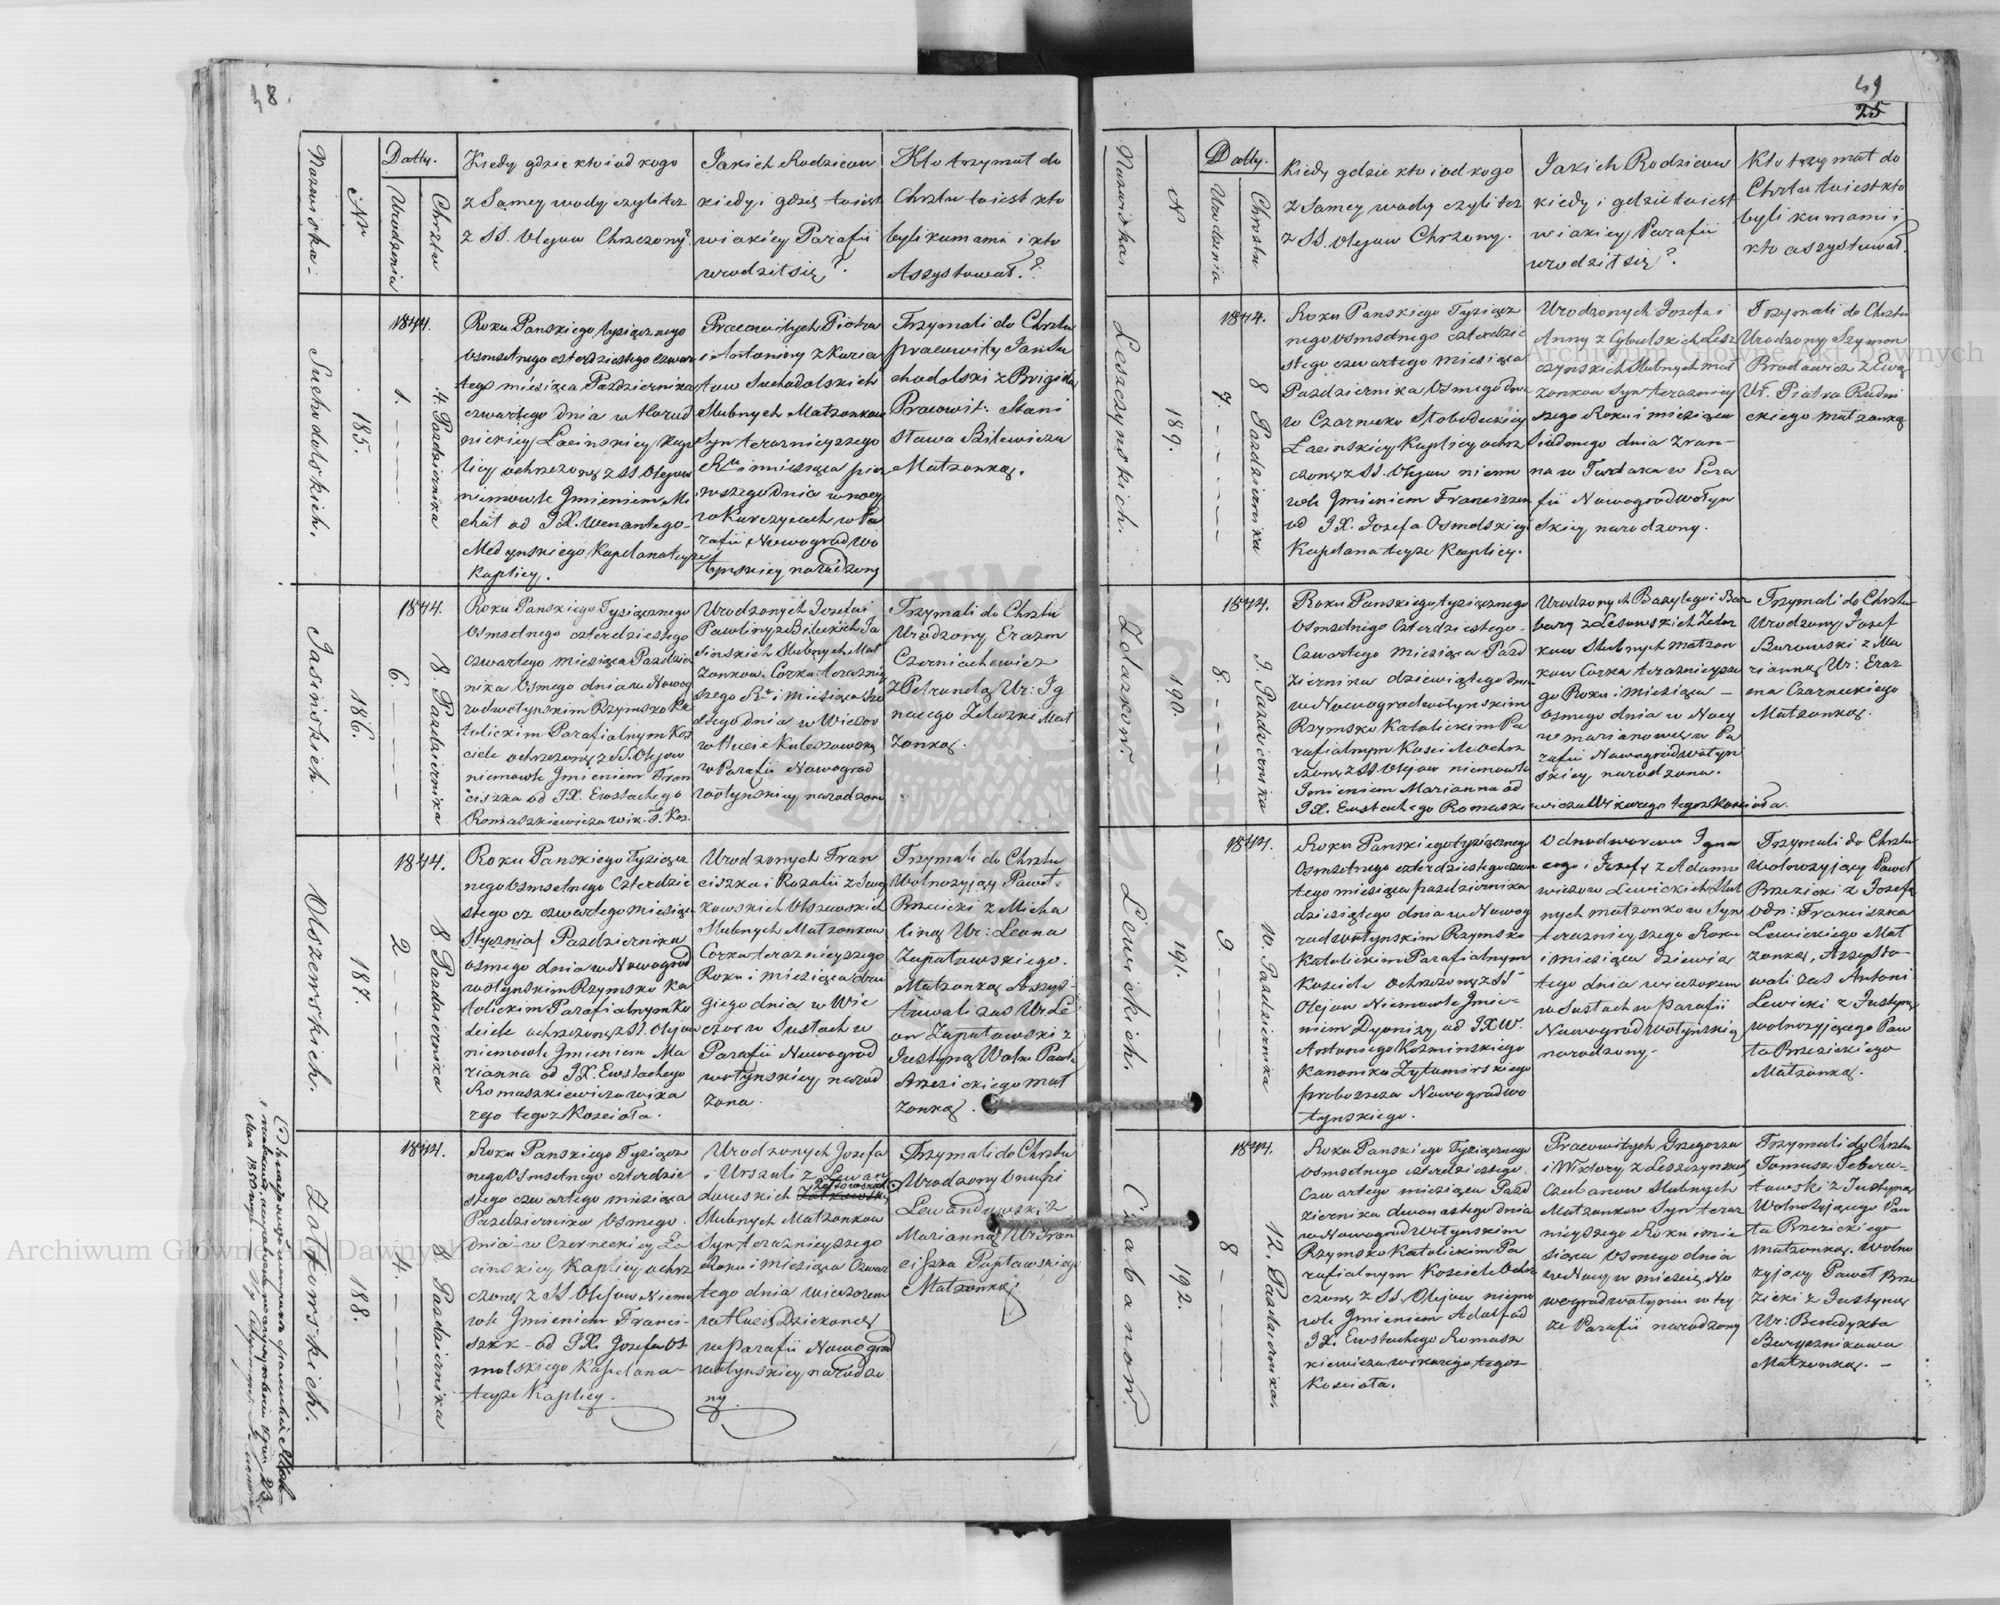 48.
Nazwiska.
Nr
Datty.
Urodzenia
Chrztu
Kiedy gdzie kto i od kogo
z Samey wody czyli też
z SS. Olejow Chrzczony?
Jakich Rodzicow
kiedy i gdzie to iest
w iakiey Parafii
urodził się?
Kto trzymał do
Chrztu to iest kto
byli kumami i kto
Assystował?
Suchodolskich.
185.
1844.
1.
4. Pazdziernika
Roku Panskiego tysiącznego
Osmsetnego czterdziestego czwar
tego miesiąca Pazdziernika
czwartego dnia w Horod
nickiey Łacinskiey Kap
licy ochrzczony z SS Olejow
niemowle Jmieniem Mi
chał od JX. Wenantego
Medynskiego Kapelana teyże
Kaplicy.
Pracowitych Piotra
i Antoniny z Kuria
tow Suchodolskich
Slubnych Małżonkow
Syn terazniejszego
Rku i miesiąca pier
wszego dnia w nocy
w Kurczycach w Pa
rafii Nowogradwo
łynskiey narodzony
Trzymali do Chrztu
pracowity Jan Su
chodolski z Brigidą
Pracowit: Stani
sława Bilewicza
Małżonką.
Jasinskich.
186.
1844.
6.
8. Pazdziernika
Roku Panskiego Tysiącznego
Osmsetnego czterdziestego
czwartego miesiąca Pazdzier
nika Osmego dnia w Nowog
rodwołynskim Rzymsko Ka
tolickim Parafialnym Koś
ciele ochrzczony z SS. Olejow
niemowle Jmieniem Fran
ciszka od JX. Ewstachego
Romaszkiewicza wik. T. Koś.
Urodzonych Jozefa i
Pawliny z Bileckich Ja
sinskich Slubnych Mał
żonkow. Corka terazniey
szego Rku i miesiąca Szo
stego dnia w Wieczor
w Hucie Kuleszowskiey
w Parafii Nowograd
wołynskiey narodzona
Trzymali do Chrztu
Urodzony Erazm
Czerniachowicz
z Petrunelą Ur: Ig
nacego Zeluzki Mał
żonką.
Olszewskich.
187.
1844.
2
8. Pazdziernika
Roku Panskiego Tysiącz
nego Osmsetnego Czterdzie
stego cz czwartego miesiąca
Stycznia/ Pazdziernika
osmego dnia w Nowograd
wołynskim Rzymsko Ka
tolickim Parafialnym Ko
sciele ochrzczony z SS. Olejow
niemowle Jmieniem Ma
rianna od JX. Ewstachego
Romaszkiewicza wika
rego tegoż Kosciola.
Urodzonych Fran
ciszka i Rozalii z
kowskich Olszewskich
Slubnych Małżonkow
Corka terazniejszego
Roku i miesiąca dru
giego dnia w Wie
czor w Sustach w
Parafii Nowograd
wołynskiey narod
zona.
Trzymali do Chrztu
Wolnozyjący Paweł
Brzezicki z Micha
liną Ur: Leona
Zapałowskiego.
Małżonką Assys
towali zas Ur. Le
on Zapałowski z
Justyną Woln Pawła
Brzezickiego mał
żonką.
Żołtkowskich.
188.
1844.
4.
8. Pazdziernika
Roku Panskiego Tysiącz
nego Osmsetnego czterdzie
stego czwartego miesiąca
Pazdziernika Osmego
dnia w Czerneckiey Ła
cinskiey Kaplicy ochrz
czony z SS. Olejow Niemo
wle Jmieniem Franci
szek od JX. Jozefa Os
molskiego Kapelana
teyże Kaplicy.
Urodzonych Jozefa
i Urszuli z Lewan
dowskich
Slubnych Małżonkow
Syn terazniejszego
Roku i miesiąca Czwar
tego dnia wieczorem
w Hucie Dziekonce
w Parafii Nowograd
wołynskiey narodzo
ny.
Trzymali do Chrztu
Urodzony Onufri
Lewandowski z
Marianną Ur. Fran
ciszka Papławskiego
Małżonką
49
25
Nazwiska
N
Datty.
Urodzenia
Chrztu
Kiedy gdzie kto i od kogo
z Samey wody czyli też
z SS. Olejow Chrzczony.
Jakich Rodzicow
kiedy i gdzie to iest
w iakiey Parafii
urodził się?
Kto trzymał do
Chrztu to iest kto
byli kumami i
kto assystował?
Leszczynskich.
189.
1844.
7
8 Pazdziernika
Roku Panskiego Tysiącz
nego osmsetnego czterdzie
stego czwartego miesiąca
Pazdziernika Osmego dnia
w Czarnecko Słobodeckiey
Łacinskiey Kaplicy ochrz
czony z SS. Olejow niemo
wle Jmieniem Franciszek
od JX. Jozefa Osmolskiego
Kapelana teyże Kaplicy.
Urodzonych Jozefa i
Anny z Cybulskich Lesz
czynskich Slubnych mał
żonkow Syn terazniey
szego Roku i miesiąca
Siodmego dnia z ran
na w Tartaku w Para
fii Nowogradwołyn
skiey narodzony.
Trzymali do Chrztu
Urodzony Szymon
Brodawicz z Ewą
Ur. Piotra Rudni
ckiego małżonką
Zdarkow.
190.
1844.
8.
9. Pazdziernika
Roku Panskiego tysiącznego
Osmsetnego Czterdziestego
Czwartego Miesiąca Pazd
ziernika dziewiątego dnia
w Nowogradwołynskim
Rzymsko Katolickim Pa
rafialnym Kosciele ochrz
czony z SS Olejow niemowle
Jmieniem Marianna od
JX. Ewstachego Romaszkiewicza Wikarego tegoż Kosciola.
Urodzonych Bazylego i Bar
bary z Lisowskich Zdar
kow Slubnych małżon
kow Corka terazniejsze
go Roku i Miesiąca
osmego dnia w Nocy
w marianowce w Pa
rafii Nowogradwołyn
skiey narodzona.
Trzymali do Chrztu
Urodzony Jozef
Burowski z Ma
rianną Ur: Eraz
ma Czarneckiego
Małżonką.
Lewickich.
191.
1844.
9.
10. Pazdziernika
Roku Panskiego tysiącznego
Osmsetnego czterdziestego czwar
tego miesiąca pazdziernika
dziesiątego dnia w Nowog
radwołynskim Rzymsko
Katolickim Parafialnym
Kosciele ochrzczony z SS
Olejow Niemowle Jmie
niem Dyonizy od JXW.
Antoniego Kozminskiego
Kanonika Zytomirskiego
proboszcza Nowogradwo
łynskiego.
Odnodworcow Igna
cego i Jozefy z Adamo
wiczow Lewickich Slub
nych małżonkow Syn
terazniejszego Roku
i miesiąca dziewią
tego dnia wieczorem
w Sustach w Parafii
Nowogradwołynskiey
narodzony.
Trzymali do Chrztu
Wolnozyjący Paweł
Brzezicki z Jozefą
Odn: Franciszka
Lewickiego Mał
żonką, Assysto
wali zas Antoni
Lewicki z Justyną
wolnozyjącego Paw
ła Brzezickiego
Małżonką.
Czabanow.
192.
1844.
8
12. Pazdziernika
Roku Panskiego Tysiącznego
Osmsetnego czterdziestego
Czwartego miesiąca Pazd
ziernika dwonastego dnia
w Nowogradwołynskim
Rzymsko Katolickim Pa
rafialnym Kosciele Ochrz
czony z SS. Olejow niemo
wle Jmieniem Adolf od
JX. Ewstachego Romasz
kiewicza wikarego tegoż
Kosciola.
Pracowitych Grzegorza
i Wiktory z Leszczynskich
Czabanow Slubnych
Małżonkow Syn teraz
niejszego Roku i mie
siąca Osmego dnia
w Nocy w miescie No
wogradwołynin w tey
że Parafii narodzony
Trzymali do Chrztu
Tomasz Tebera
towski z Justyną
Wolnozyjącego Paw
ła Brzezickiego
małżonką. wolno
zyjący Paweł Brze
zicki z Justyną
Ur: Benedykta
Małżonką.
Archiwum Główne Akt Dawnych
Archiwum Główne Akt Dawnych